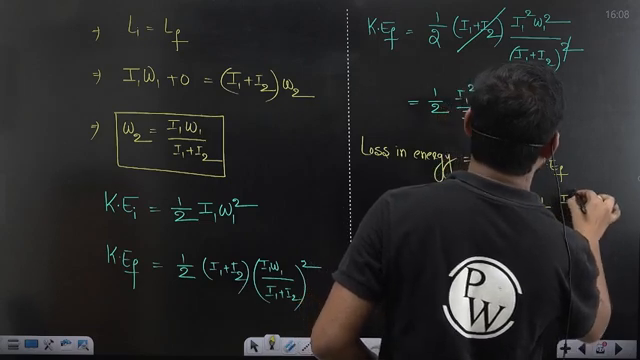 ⇒ Li = Lf
⇒ I₁W₁ + 0 = (I₁+I₂)ω₂
⇒ ω₂ = I₁W₁ / I₁+I₂
K.Ei = 1/2 I₁ω₁²
K.Ef = 1/2 (I₁+I₂) (I₁W₁ / I₁+I₂)²
K.Ef = 1/2 (I₁+I₂) I₁²ω₁² / (I₁+I₂)²
= 1/2 I₁²
Loss in energy =
Ef
I
PW
16:08